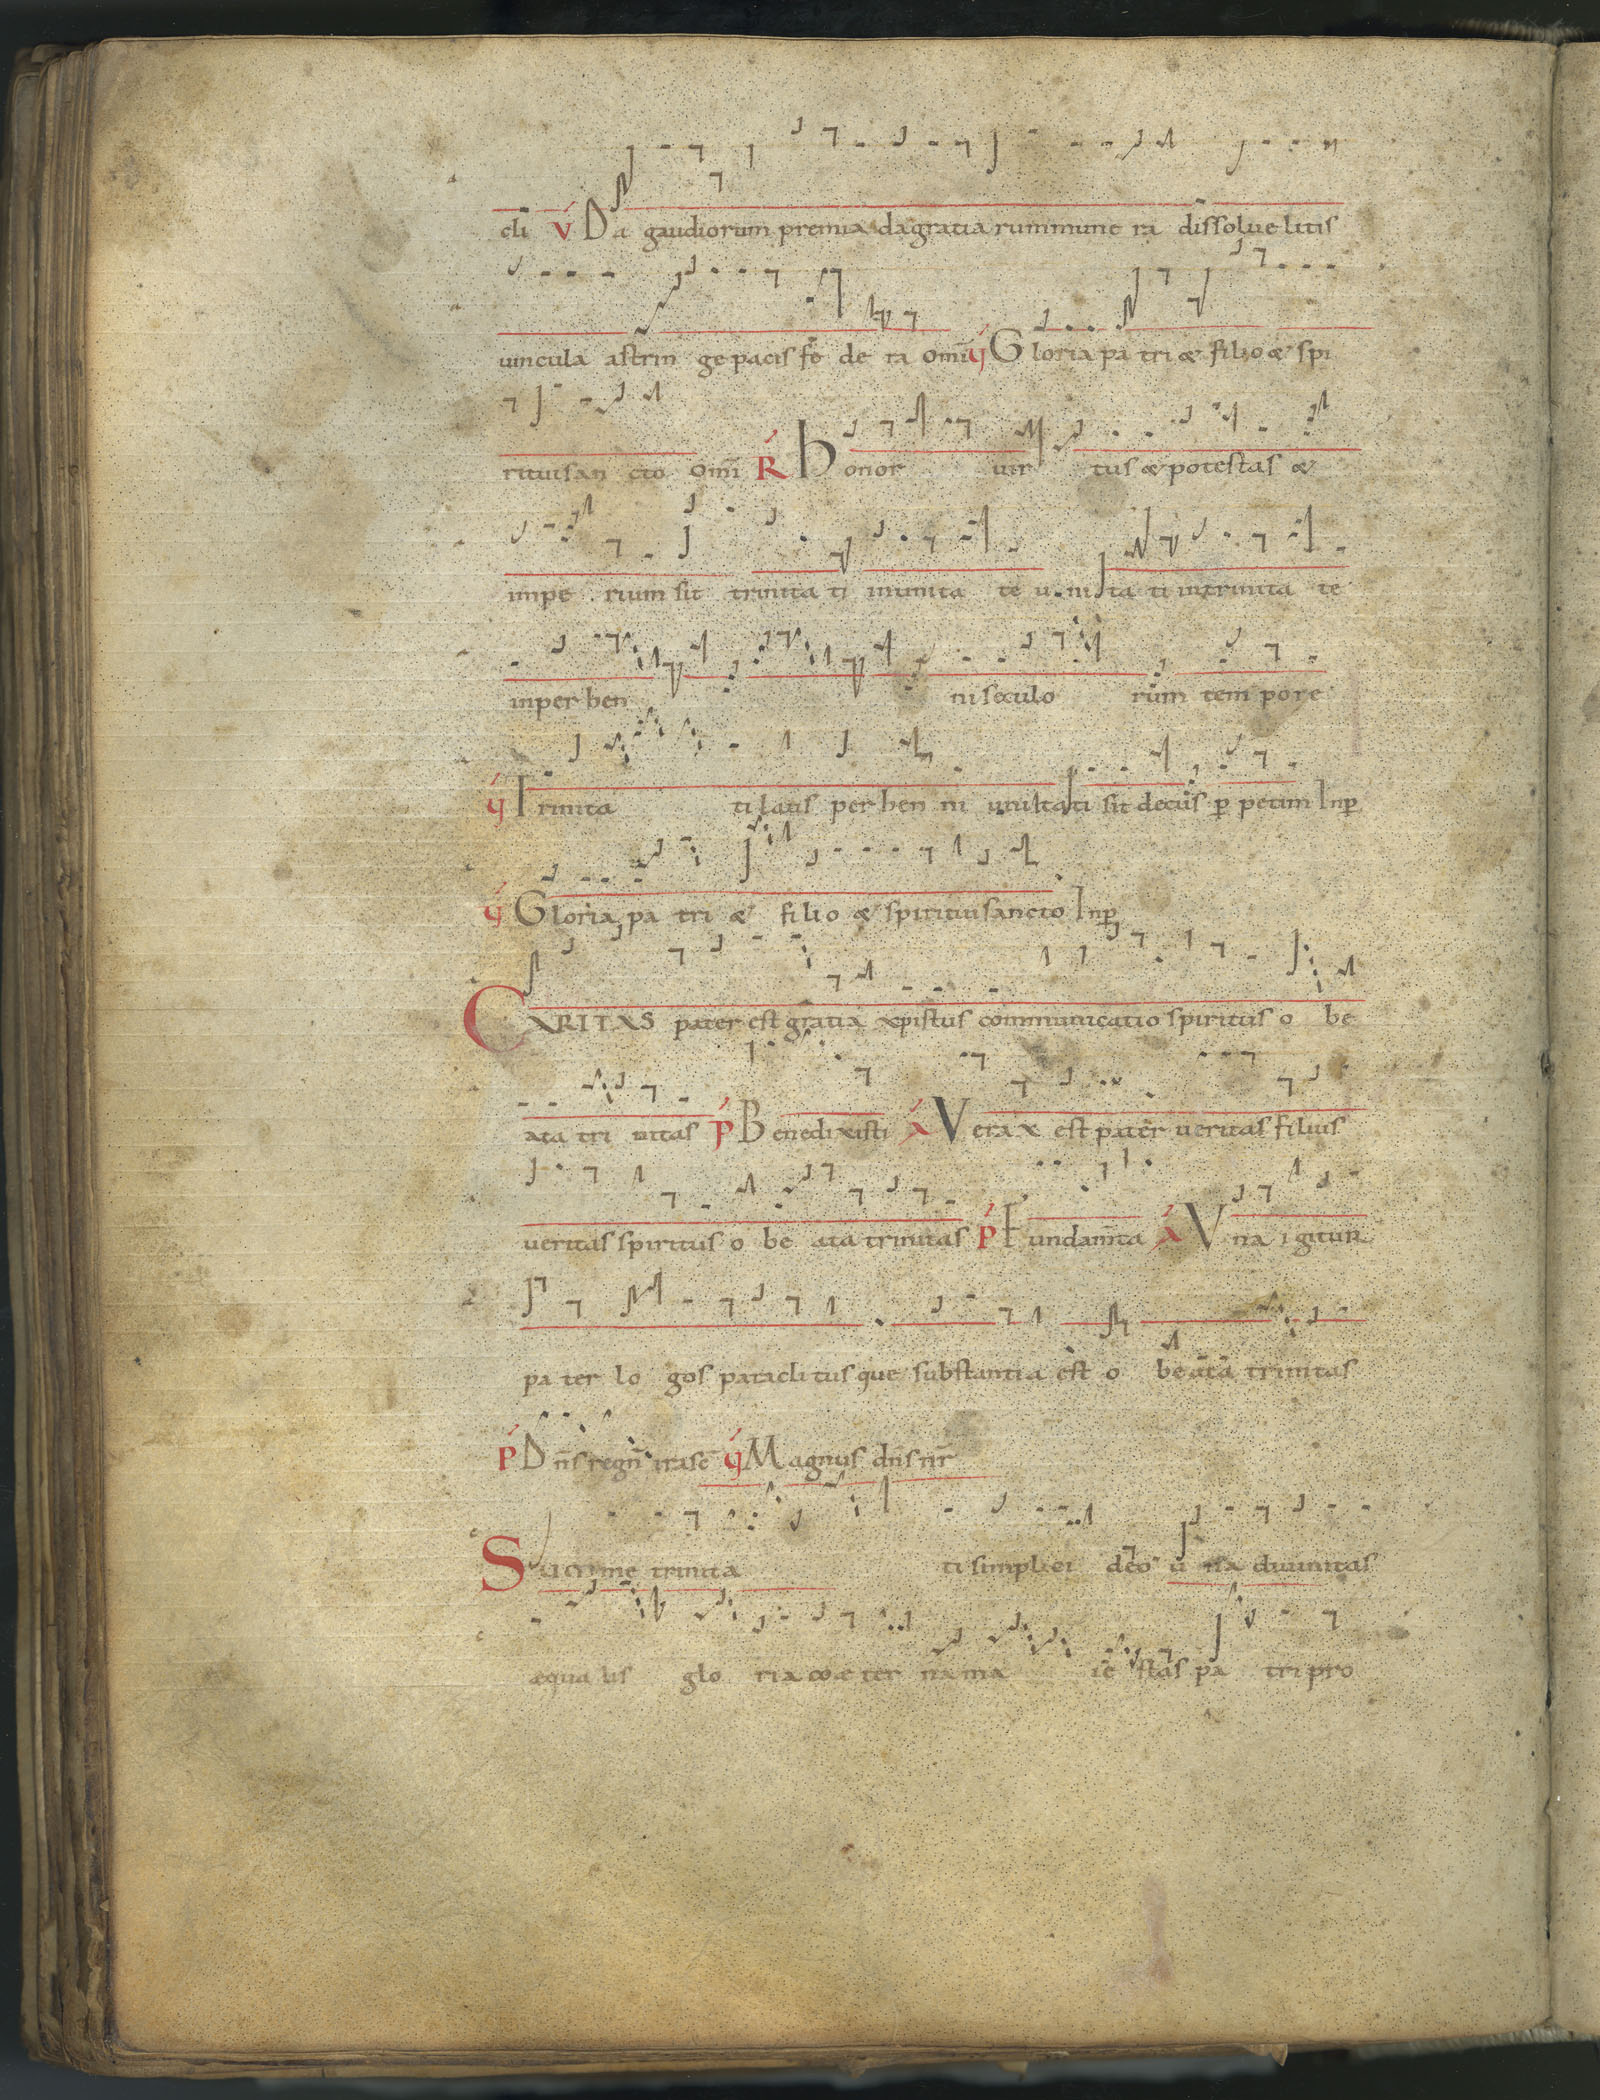 cli V Da gaudiorum premia da gratiarum munera dissolue litis
uincula astringe pacis fędera Omñ ℣ Gloria patri & filio & spi
ritui sancto Omñ R Honor uirtus & potestas &
imperium sit trinitati in unitate unitati in trinitate
in perhenni seculorum tempore
℣ Trinitati laus perhenni unitati sit decus ꝑpetim Inꝑ
℣ Gloria patri & filio & spiritui sancto Inꝑ
CARITAS pater est gratia xpistus communicatio spiritus o be
ata trinitas P Benedixisti A Verax est pater ueritas filius
ueritas spiritus o beata trinitas P Fundam̄ta A Vna igitur
pater logos paraclitusque substantia est o beata trinitas
P Dn̄s regn̄ irasc̄ ℣ Magnus dn̄s nr̄
Summe trinitati simplici deo una diuinitas
ęqualis gloria coæterna maiestas patri pro